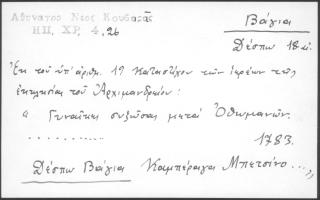 Αθυνατος Νεος Κουβαρᾶς
ΗΠ, ΧΡ, 4, 26
Βάγια
Δέσπω 18 αἰ.
Ἐκ τοῦ ὑπ' ἀριθμ. 19 κατάστιχου τῶν ἱερέων τῆς
ἐκκλησίας τοῦ Ἀρχιμανδρείου:
" Γυναῖκες συζῶσαι μετά Ὀθωμανῶν.
..........
1783.
Δέσπω Βάγια Καμπέραγα Μπετσίνο...,